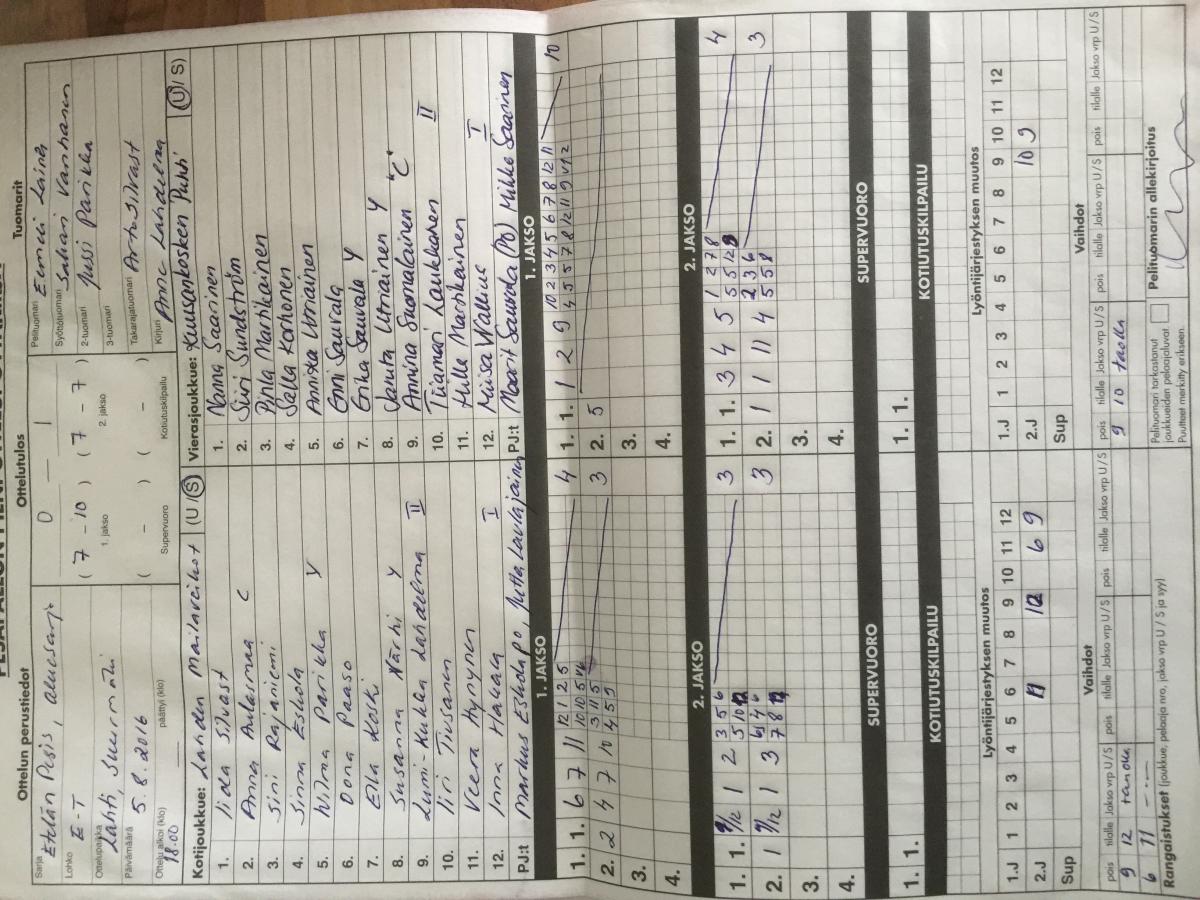 PESÄPALLON PIENI OTTELUPÖYTÄKIRJA
Ottelun perustiedot
Sarja Etelän Pesis, aluesarja
Lohko E-T
Ottelupaikka Lahti, Suurmäki
Päivämäärä 5.8.2016
Ottelu alkoi (klo) 18.00 päättyi (klo)
Ottelutulos
0 – 1
( 7 – 10 ) ( 7 – 7 )
1. jakso 2. jakso
( – ) ( – )
Supervuoro Kotiutuskilpailu
Tuomarit
Pelituomari Eemeli Laine
Syöttötuomari Juhani Vanhanen
2-tuomari Jussi Parikka
3-tuomari
Takarajatuomari Arto Sivast
Kirjuri Anne Lahdelma
Kotijoukkue: Lahden Mailaveikot (U / S)
1. Iida Sivast
2. Anna Aulamaa C
3. Sini Rajaniemi
4. Sinna Eskola
5. Wilma Parikka Y
6. Oona Paaso
7. Ella Koski
8. Susanna Närhi Y
9. Lumi-Kukka Lahdelma II
10. Iiri Tiusanen
11. Veera Hynynen
12. Inna Hakaa I
PJ:t Markus Eskola PO, Jutta Laulajainen
Vierasjoukkue: Kuusankosken Puhti (U / S)
1. Nanna Saarinen
2. Siiri Sundström
3. Pihla Martikainen
4. Salla Korhonen
5. Annika Utriainen
6. Enni Sauvala
7. Erika Sauvala Y
8. Jenita Utriainen Y
9. Annina Suomalainen "C"
10. Tiiamari Laukkanen II
11. Hille Martikainen
12. Miisa Wallius I
PJ:t Maarit Sauvala (PO) Mikko Saarinen
1. JAKSO
1. 1. 6 7 11 4
2. 2 4 7 10 3
3.
4.
1. JAKSO
1. 1. 1 2 9 10 2 3 4 5 6 7 8 12 11 10
2. 5
3.
4.
2. JAKSO
1. 1. 9/12 1 2 3 5 6 3
2. 1 9/12 1 3 3
3.
4.
2. JAKSO
1. 1. 3 4 5 1 2 7 8 4
2. 1 1 11 4 2 3 6 3
5 5 8
3.
4.
SUPERVUORO
1. 1.
SUPERVUORO
1. 1.
KOTIUTUSKILPAILU
KOTIUTUSKILPAILU
Lyöntijärjestyksen muutos
1.J 1 2 3 4 5 6 7 8 9 10 11 12
2.J 11 12 6 9
Sup
Lyöntijärjestyksen muutos
1.J 1 2 3 4 5 6 7 8 9 10 11 12
2.J 10 9
Sup
Vaihdot
pois tilalle Jakso vrp U / S pois tilalle Jakso vrp U / S pois tilalle Jakso vrp U / S
9 12
6 11 – . –
Vaihdot
pois tilalle Jakso vrp U / S pois tilalle Jakso vrp U / S pois tilalle Jakso vrp U / S
9 10
Rangaistukset (joukkue, pelaaja nro, jakso vrp U / S ja syy)
Pelituomari tarkastanut joukkueiden pelaajaluvat
Puutteet merkitty erikseen.
Pelituomarin allekirjoitus